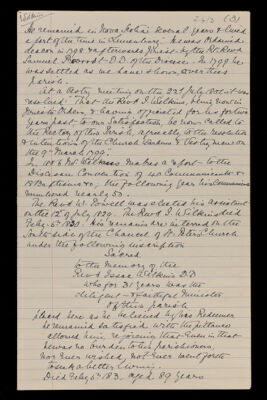 Wilkins
243 (31
He remained in Nova Scotia several years & lived
a part of the time in Lunenburg. He was Ordained
deacon in 1798 & afterwards Priest by the Rt. Revd.
Samuel Provoost D.D. of this Diocese. In 1799 he
was settled as we have shown, over this
parish.
At a Vestry meeting on the 22d July 1801 it was
resolved: That as Revd I. Wilkins, being now in
Priests Orders, & having officiated for us for two
years past to our Satisfaction, be now called to
the Rectory of this Parish, agreeably to the resolution
& intention of the Church Wardens & Vestry men on
the 9th March 1799.
In 1808 Mr Wilkins makes a report to the
Diocesan Convention of 40 Communicants &
18 Baptisms, the following year his Communicants
numbered nearly 50.
The Revd W. Powell was elected his Assistant
on the 12th of July 1829. The Revd I. Wilkins died
Feby 5th 1830. His remains are interred on the
South side of the Chancel of St Peters Church
under the following inscription
Sacred
to the Memory of the
Revd Isaac Wilkins D.D
who for 31 years was the
diligent & faithful Minister
of this parish
placed here as he believed by his Redeemer
he remained satisfied with the pittance
allowed him, rejoicing that even in that
he was no burden to his parishioners,
nor ever wished, nor ever went forth
to seek a better living.
Died Feby 5th 183. aged 89 Years